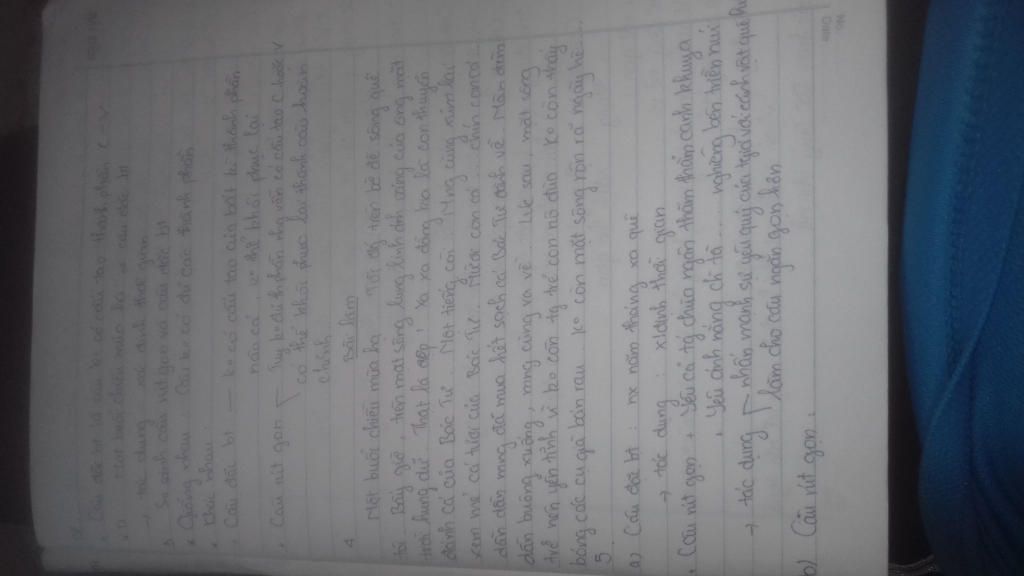 No.
Date
2)
+ Câu đặc biệt là câu ko có cấu tạo thành phần C - V
VD Một buổi chiều mùa hạ → câu đặc bt
→ tác dụng : xác định thời gian
3 So sánh câu rút gọn và câu đặc bt
* Giống nhau : Câu ko có đủ các thành phần
* Khác nhau :
+ Câu đặc bt — ko có cấu tạo của bất kì thành phần
nào cả, ko thể khôi phục lại
+ Câu rút gọn Tuy ko đủ t/phần nhưng vẫn có cấu tạo C hoặc V
có thể khôi phục lại thành câu hoàn
chỉnh
4 Bài làm
Một buổi chiều mùa hạ. Tôi đang trên bờ đê sông quê
tôi. Bây giờ, trên mặt sông lung linh ánh nắng của ông mặt
trời hung dữ. Thật là đẹp! Xa xa đằng kia là con thuyền
đánh cá của Bác Tư. Một tiếng còi. Mng cùng xúm lại
xem mẻ cá tươi của Bác Tư. Mười con cá... chín con cá...
dần dần mng đã mua hết sạch cá Bác Tư đánh về. Màn đêm
dần buông xuống, mng cùng ra về. Lúc sau, mặt sông
trở nên yên tĩnh vì ko còn tụ trẻ con nô đùa. Ko còn thấy
bóng các cụ già bán rau. Ko còn mặt sông rộn rã ngày hè...
5
a) Câu đặc bt : nx năm tháng xa quê
→ tác dụng : xđịnh thời gian
+ Câu rút gọn + Yêu cả tg chùa ngân thăm thẳm canh khuya
+ Yêu ánh nắng ch tà ... nghiêng bên triền núi
→ tác dụng nhấn mạnh sự yêu quý của tgiả với cảnh vật quê hg
làm cho câu ngắn gọn hơn
b) Câu rút gọn :